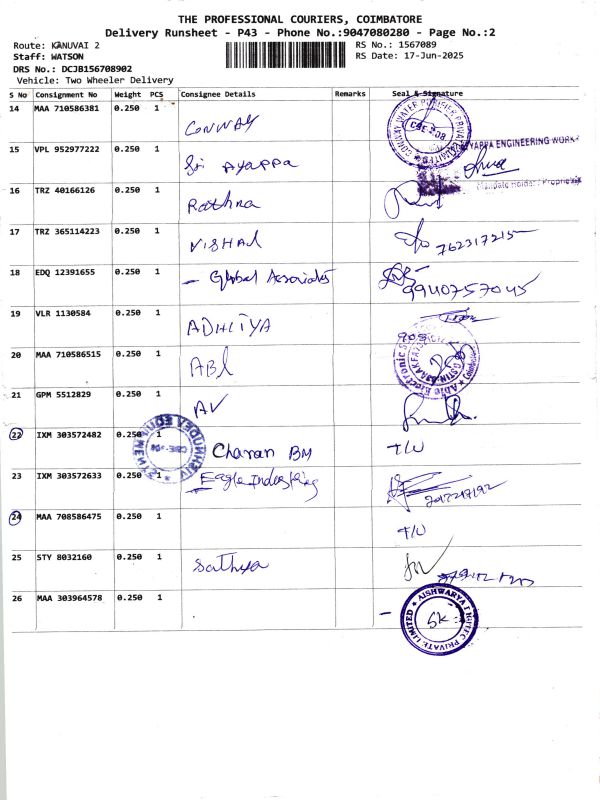 THE PROFESSIONAL COURIERS, COIMBATORE
Delivery Runsheet - P43 - Phone No.:9047080280 - Page No.:2
Route: KANUVAI 2
RS No.: 1567089
Staff: WATSON
RS Date: 17-Jun-2025
DRS No.: DCJB156708902
Vehicle: Two Wheeler Delivery
S No Consignment No Weight PCS Consignee Details Remarks Seal & Signature
14 MAA 710586381 0.250 1 CONWAY
15 VPL 952977222 0.250 1 Sri AYAPPA ENGINEERING WORK
16 TRZ 40166126 0.250 1 Rathna
17 TRZ 365114223 0.250 1 VISHAL
18 EDQ 12391655 0.250 1 - Global Associates 9940757045
19 VLR 1130584 0.250 1 ADHITYA
20 MAA 710586515 0.250 1 ABI
21 GPM 5512829 0.250 1 AV
22 IXM 303572482 0.250 1 Charan BM T/U
23 IXM 303572633 0.250 1 Eagle Industring
24 MAA 708586475 0.250 1 T/U
25 STY 8032160 0.250 1 Sathya
26 MAA 303964578 0.250 1 - SK